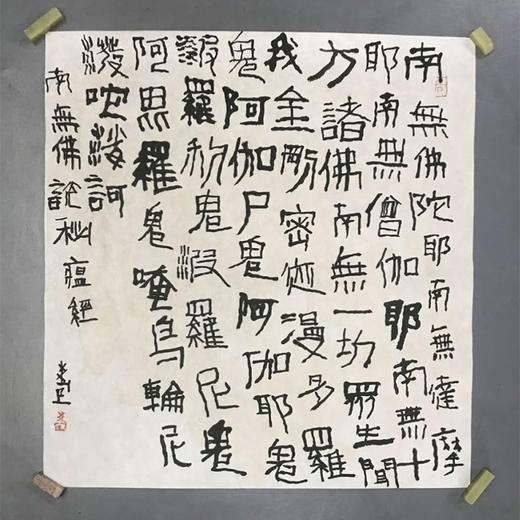 南無佛陀耶南無達摩
耶南無僧伽耶南無十
方諸佛南無一切眾生聞
我金剛密迹漫多羅
鬼阿伽尸鬼阿伽耶鬼
羅鬼沒羅尼鬼
阿思羅鬼唵烏輪尼
訶
南無佛說瘟經